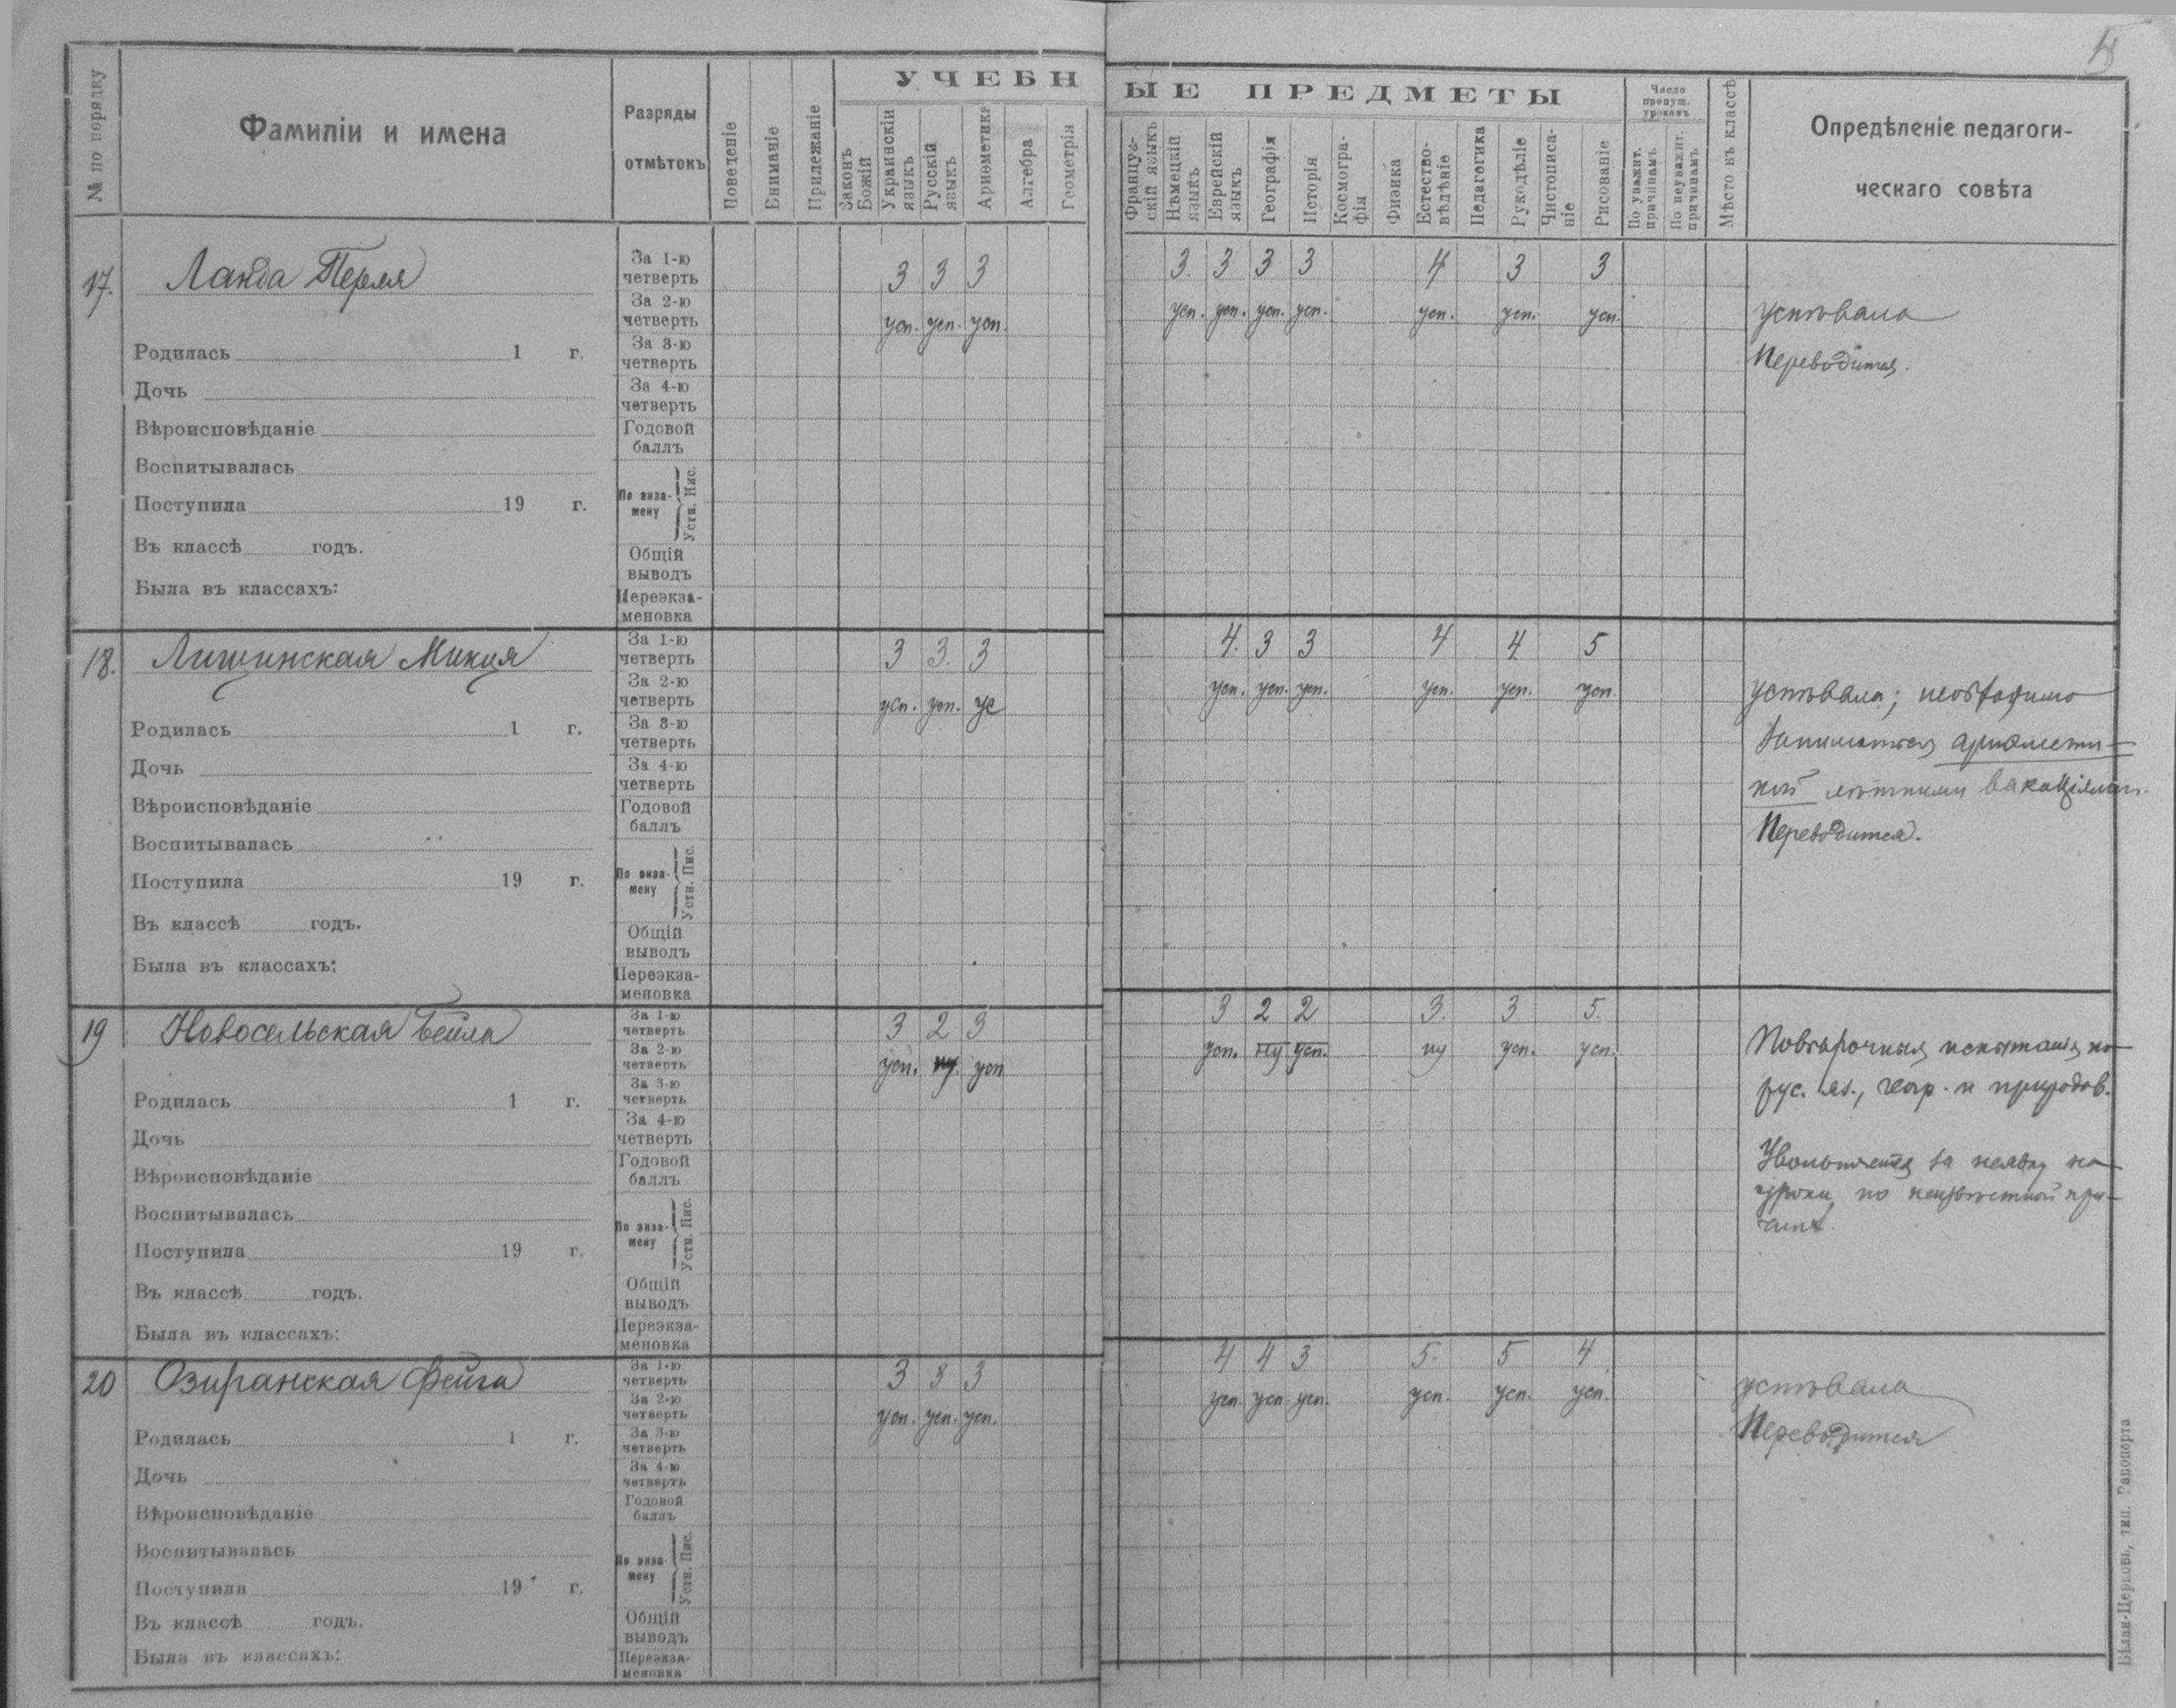 5
№ по порядку
Фамиліи и имена
Разряды
отмѣтокъ
Поведеніе
Вниманіе
Прилежаніе
УЧЕБН
Законъ Божій
Украинскій языкъ
Русскій языкъ
Ариѳметика
Алгебра
Геометрія
ЫЕ ПРЕДМЕТЫ
Француз-
скій языкъ
Нѣмецкій языкъ
Еврейскій языкъ
Географія
Исторія
Космогра-
фія
Физика
Естество-
вѣдѣніе
Педагогика
Рукодѣліе
Чистописа-
ніе
Рисованіе
Число
пропущ.
уроковъ
По уважит. причинамъ
По неуважит. причинамъ
Мѣсто въ классѣ
Опредѣленіе педагоги-
ческаго совѣта
17. Ланда Перля
Родилась 1 г.
Дочь
Вѣроисповѣданіе
Воспитывалась
Поступила 19 г.
Въ классѣ годъ.
Была въ классахъ:
За 1-ю четверть 3 3 3 3. 3 3 3 4 3 3
За 2-ю четверть усп. усп. усп. усп. усп. усп. усп. усп. усп. усп.
За 3-ю четверть
За 4-ю четверть
Годовой баллъ
По экза-
мену
Устн. Пис.
Общій выводъ
Переэкза-
меновка
успѣвала
Переводится.
18. Лищинская Микця
Родилась 1 г.
Дочь
Вѣроисповѣданіе
Воспитывалась
Поступила 19 г.
Въ классѣ годъ.
Была въ классахъ:
За 1-ю четверть 3 3. 3 4. 3 3 4 4 5
За 2-ю четверть усп. усп. ус усп. усп. усп. усп. усп. усп.
За 3-ю четверть
За 4-ю четверть
Годовой баллъ
По экза-
мену
Устн. Пис.
Общій выводъ
Переэкза-
меновка
успѣвала; необходимо
заниматься ариѳмети-
кой лѣтними вакаціями.
Переводится.
19 Новосельская Бейла
Родилась 1 г.
Дочь
Вѣроисповѣданіе
Воспитывалась
Поступила 19 г.
Въ классѣ годъ.
Была въ классахъ:
За 1-ю четверть 3 2 3 3 2 2 3. 3 5.
За 2-ю четверть усп. ну. усп усп. ну усп. ну усп. усп.
За 3-ю четверть
За 4-ю четверть
Годовой баллъ
По экза-
мену
Устн. Пис.
Общій выводъ
Переэкза-
меновка
Повѣрочныя испытанія по
рус. яз., геогр. и природов.
Увольняется за неявку на
уроки по неизвѣстной при-
чинѣ.
20 Озиранская Фейга
Родилась 1 г.
Дочь
Вѣроисповѣданіе
Воспитывалась
Поступила 19 г.
Въ классѣ годъ.
Была въ классахъ:
За 1-ю четверть 3 3 3 4 4 3 5. 5 4
За 2-ю четверть усп. усп. усп. усп. усп. усп. усп. усп. усп.
За 3-ю четверть
За 4-ю четверть
Годовой баллъ
По экза-
мену
Устн. Пис.
Общій выводъ
Переэкза-
меновка
успѣвала
Переводится
Бѣлая-Церковь, тип. Рапопорта